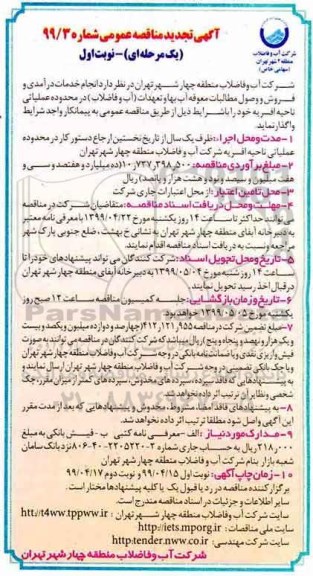 شرکت آب و فاضلاب
منطقه ۴ شهر تهران
(سهامی خاص)
آگهی تجدید مناقصه عمومی شماره ۹۹/۳
(یک مرحله‌ای) - نوبت اول
شرکت آب و فاضلاب منطقه چهار شهر تهران در نظر دارد انجام خدمات درآمدی و
فروش و وصول مطالبات معوقه آب بها و تعهدات (آب و فاضلاب) در محدوده عملیاتی
ناحیه افسریه خود را با شرایط ذیل از طریق مناقصه عمومی به پیمانکار واجد شرایط
واگذار نماید.
۱- مدت و محل اجراء: ظرف یک سال از تاریخ نخستین ارجاع دستور کار در محدوده
عملیاتی ناحیه افسریه شرکت آب و فاضلاب منطقه چهار شهر تهران
۲- مبلغ برآوردی مناقصه: ۱۰,۷۳۷,۳۹۸,۵۰۰ (ده میلیارد و هفتصد و سی و
هفت میلیون و سیصد و نود و هشت هزار و پانصد) ریال
۳- محل تامین اعتبار: از محل اعتبارات جاری شرکت
۴- مهلت و محل دریافت اسناد مناقصه: متقاضیان شرکت در مناقصه
می‌توانند حداکثر تا ساعت ۱۴ روز یکشنبه مورخ ۱۳۹۹/۰۴/۲۲ با معرفی نامه معتبر
به دبیرخانه آبفای منطقه چهار شهر تهران به نشانی خ بهشت، ضلع جنوبی پارک شهر
مراجعه و نسبت به دریافت اسناد مناقصه اقدام نمایند.
۵- تاریخ و محل تحویل اسناد: شرکت کنندگان می تواند پیشنهادهای خود را تا
ساعت ۱۴ روز شنبه مورخ ۱۳۹۹/۰۵/۰۴ به دبیرخانه آبفای منطقه چهار شهر تهران
در قبال اخذ رسید تحویل نمایند.
۶- تاریخ و زمان بازگشایی: جلسه کمیسیون مناقصه ساعت ۱۲ صبح روز
یکشنبه مورخ ۱۳۹۹/۰۵/۰۵ خواهد بود.
۷- مبلغ تضمین شرکت در مناقصه ۴۱۲,۱۲۱,۹۵۵ (چهارصد و دوازده میلیون و یکصد و بیست
و یک هزار و نهصد و پنجاه و پنج) ریال میباشد که شرکت کنندگان در مناقصه می توانند به صورت
فیش واریزی نقدی و یا ضمانت نامه بانکی در وجه شرکت آب و فاضلاب منطقه چهار شهر تهران
و یا چک بانکی تضمینی در وجه شرکت آب و فاضلاب منطقه چهار شهر تهران ارسال نمایند و
به پیشنهادهایی که فاقد سپرده، سپرده های مخدوش، سپرده های کمتر از میزان مقرر، چک
شخصی و نظایر آن ترتیب اثر داده نخواهد شد.
۸- به پیشنهادهای فاقد امضا، مشروط، مخدوش و پیشنهادهایی که بعد از مدت مقرر
این آگهی واصل شود مطلقا ترتیب اثر داده نخواهد شد.
۹- مدارک مورد نیاز: الف - معرفی نامه کتبی ب - فیش بانکی به مبلغ
ریال به حساب جاری شماره نزد بانک سامان
شعبه بازار بنام شرکت آب و فاضلاب منطقه چهار شهر تهران
۱۰- زمان چاپ آگهی: نوبت اول ۹۹/۰۴/۱۵ و نوبت دوم ۹۹/۰۴/۱۷
برگزار کننده مناقصه در رد یا قبول یک یا کلیه پیشنهادها مختار است.
سایر اطلاعات و جزئیات در اسناد مناقصه مندرج است.
سایت شرکت آب و فاضلاب منطقه چهار شهر تهران: http://t4ww.tpww.ir
سایت ملی مناقصات: http://iets.mporg.ir
سایت شرکت مهندسی: http:tender.nww.co.ir
شرکت آب و فاضلاب منطقه چهار شهر تهران